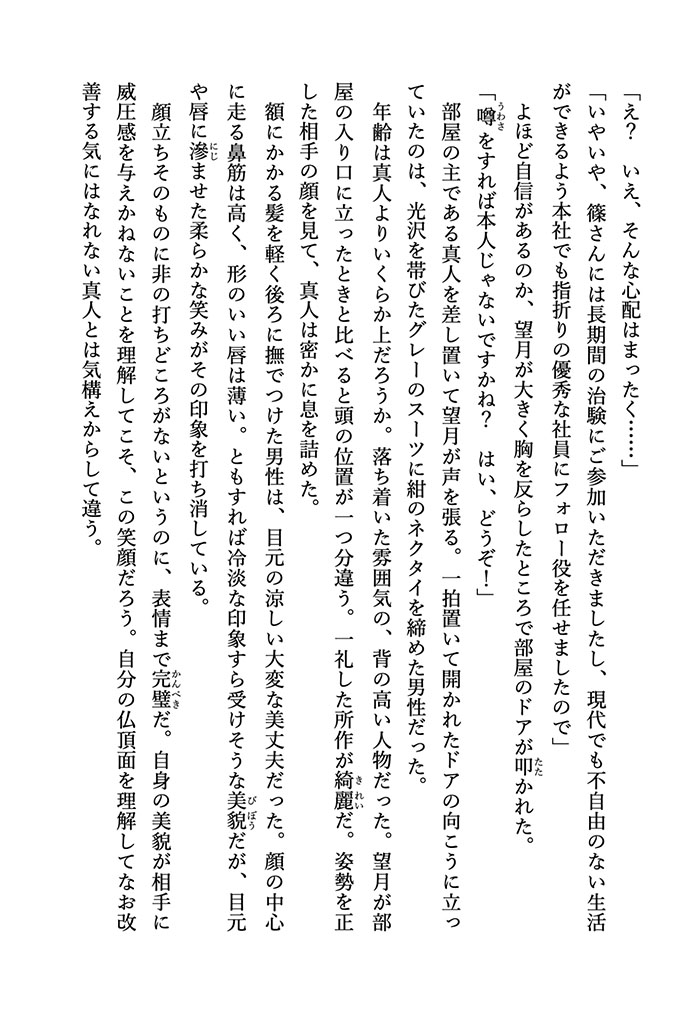 「え？　いえ、そんな心配はまったく……」
「いやいや、篠さんには長期間の治験にご参加いただきましたし、現代でも不自由のない生活
ができるよう本社でも指折りの優秀な社員にフォロー役を任せましたので」
　よほど自信があるのか、望月が大きく胸を反らしたところで部屋のドアが叩かれた。
「噂をすれば本人じゃないですかね？　はい、どうぞ！」
　部屋の主である真人を差し置いて望月が声を張る。一拍置いて開かれたドアの向こうに立っ
ていたのは、光沢を帯びたグレーのスーツに紺のネクタイを締めた男性だった。
　年齢は真人よりいくらか上だろうか。落ち着いた雰囲気の、背の高い人物だった。望月が部
屋の入り口に立ったときと比べると頭の位置が一つ分違う。一礼した所作が綺麗だ。姿勢を正
した相手の顔を見て、真人は密かに息を詰めた。
　額にかかる髪を軽く後ろに撫でつけた男性は、目元の涼しい大変な美丈夫だった。顔の中心
に走る鼻筋は高く、形のいい唇は薄い。ともすれば冷淡な印象すら受けそうな美貌だが、目元
や唇に滲ませた柔らかな笑みがその印象を打ち消している。
　顔立ちそのものに非の打ちどころがないというのに、表情まで完璧だ。自身の美貌が相手に
威圧感を与えかねないことを理解してこそ、この笑顔だろう。自分の仏頂面を理解してなお改
善する気にはなれない真人とは気構えからして違う。